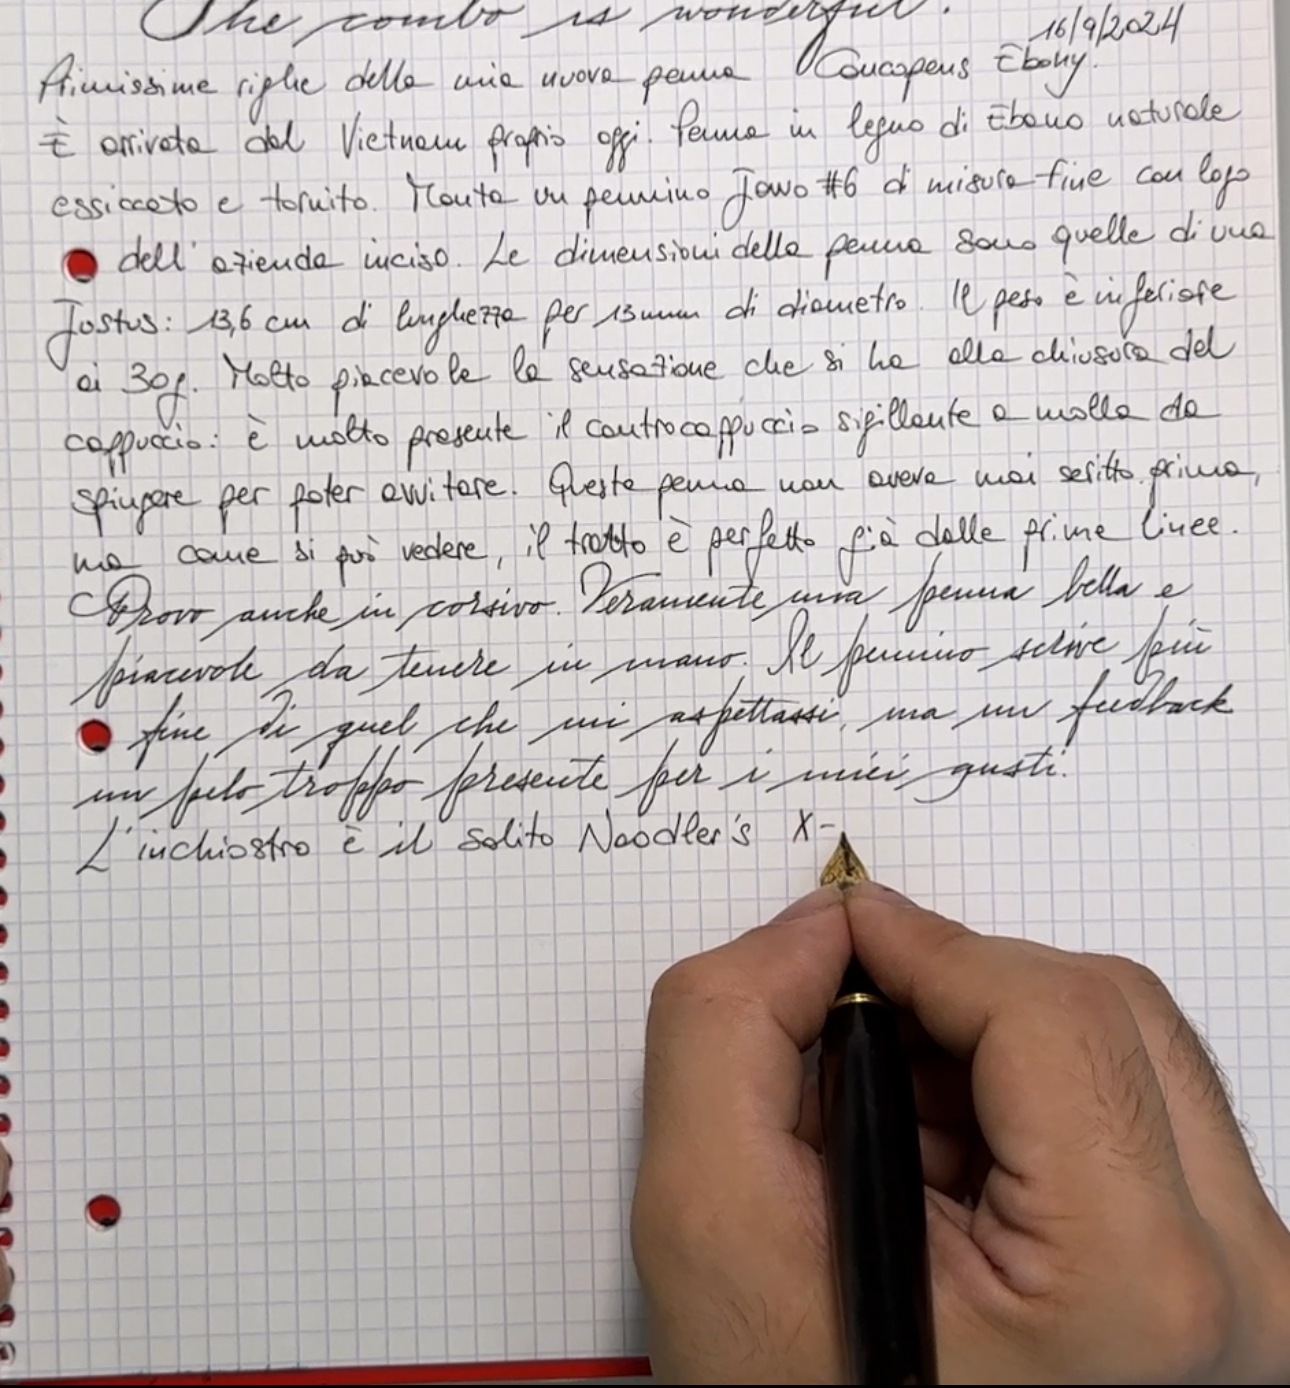 The combo is wonderful.
16/9/2024
Primissime righe della mia nuova penna Concopens Ebony.
È arrivata dal Vietnam proprio oggi. Penna in legno di Ebano naturale
essiccato e tornito. Monta un pennino Jowo #6 di misura fine con logo
dell'azienda inciso. Le dimensioni della penna sono quelle di una
Justus: 13,6 cm di lunghezza per 13mm di diametro. Il peso è inferiore
ai 30g. Molto piacevole la sensazione che si ha alla chiusura del
cappuccio: è molto presente il controcappuccio sigillante a molla da
spingere per poter avvitare. Questa penna non aveva mai scritto prima,
ma come si può vedere, il tratto è perfetto già dalle prime linee.
Provo anche in corsivo. Veramente una penna bella e
piacevole da tenere in mano. Il pennino scrive più
fine di quel che mi aspettassi, ma un feedback
un pelo troppo presente per i miei gusti.
L'inchiostro è il solito Noodler's X-